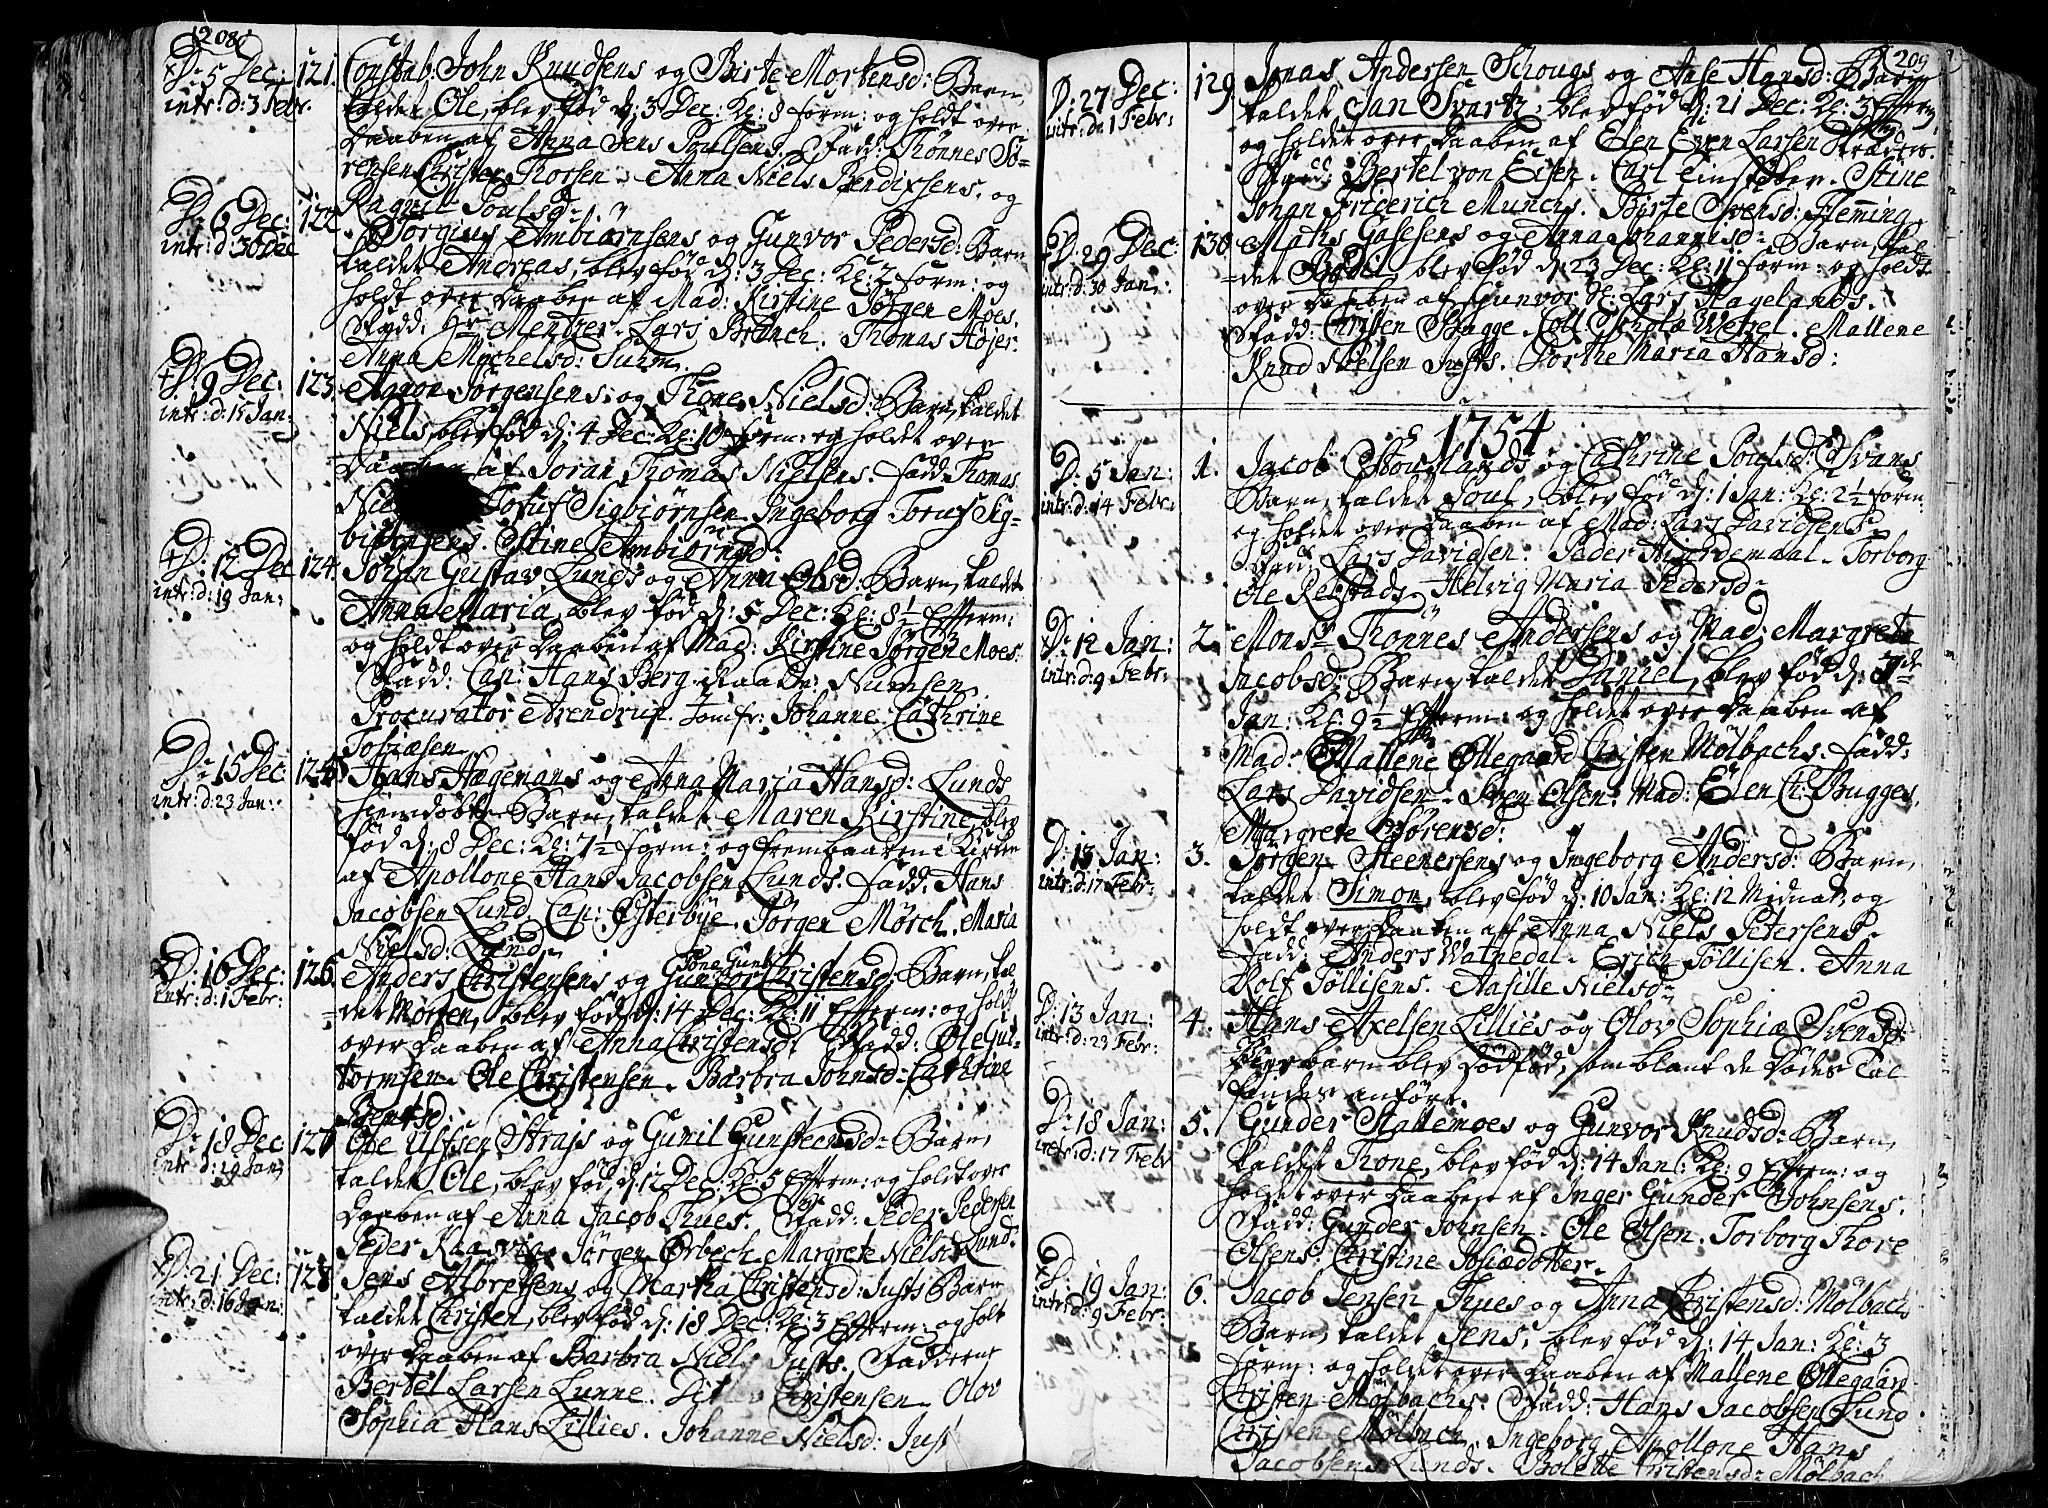 208
D: 5 Dec:
intr: d: 3 Febr.
121. Constab: John Knudsens og Birte Mortensd: Barn,
kaldet Ole, blev fød d: 3 Dec: Kl: 8 form: og holdt over
Daaben af Anna Jens Poulsens. Fadd: Thönnes Sö-
rensen Christen Thorsen. Anna Niels Bendixsens. og
Ragnil Poulsd:
D: 6 Dec:
intr: d: 30 Dec
122. Torgius Ambiörnsens og Gunvor Pedersd: Barn
kaldet Andreas, blev fød d: 3 Dec: Kl: 2 form: og
holdt over Daaben af Mad: Kirstine Jörgen Moes.
Fadd: Hr Mentzer. Lars Branch. Thomas Höjer.
Anna Michelsd: Suhm.
D: 9 Dec:
intr: d: 15 Jan:
123. Aanon Jörgensens og Thone Nielsd: Barn, kaldet
Niels, blev fød d: 4 Dec: Kl: 10 form: og holdet over
Daaben af Joran Thomas Nielsens. Fadd: Thomas
Toruf Sigbiörnsen. Ingeborg Torufs Sig-
biörnsens. Stine Ambiörnsd:
D: 12 Dec
intr: d: 19 Jan:
124. Johan Gustav Lunds og Anna Olsd: Barn, kaldet
Anna Maria, blev fød d: 5 Dec: Kl: 8½ Efterm:
og holdt over Daaben af Mad: Kirstine Jörgen Moes.
Fadd: Cap: Hans Berg. Raadm: Numsen.
Procurator Arendrup. Jomfr: Johanne Cathrine
Tobiæsen
D: 15 Dec
intr: d: 23 Jan:
125. Hans Hagemans og Anna Maria Hansd: Lunds
hiemdöbte Barn, kaldet Maren Kirstine, blev
fød d: 8 Dec: Kl: 7½ form: og frembaaren i Kirken
af Apollone Hans Jacobsen Lunds. Fadd: Hans
Jacobsen Lund. Cap: Österbye. Jörgen Mörch. Maria
Nielsd: Lund.
D: 16 Dec:
intr: d: 1 Febr:
126. Anders Christensens og Gunvor Christensd: Barn, kal
det Morten, blev fød d: 14 Dec: Kl: 11 Efterm: og holdt
over Daaben af Anna Christensd: Fadd: Ole Gut-
tormsen. Ole Christensen. Barbra Johnsd: Cathrine
Bentsd:
D: 18 Dec:
intr: d: 29 Jan:
127. Ole Ulfsen Strajs og Gunil Gunsteensd: Barn,
kaldet Ole, blev fød d: 12 Dec: Kl: 5 Efterm: og holdt over
Daaben af Anna Jacob Thues. Fadd: Peder Pedersen
Peder Jörgen Orbech. Margrete Nielsd: Lund.
D: 21 Dec:
intr: d: 16 Jan:
128. Jens Albretsens og Martha Christensd: Justs Barn
kaldet Christen, blev fød d: 18 Dec: Kl: 3 Efterm: og holt
over Daaben af Barbra Niels Justs. Fadderne
Bertel Larsen Lunne. Christensen. Olov
Sophia Hans Lillies. Johanne Nielsd: Just
209
D: 27 Dec:
intr: d: 1 Febr:
129. Jonas Andersen Schougs og Aase Hansd: Barn
kaldet Jan Svartz, blev fød d: 21 Dec: Kl: 3 Efterm
og holdet over Daaben af Elen Even Larsen
Fadd: Bertel von Eisen. Carl Stine
Johan Friderich Munchs. Birte Svensd: Fleming
D: 29 Dec:
intr: d: 30 Jan:
130. Maths Gasesens og Anna Johannisd: Barn, kal-
det Bodil, blev fød d: 23 Dec: Kl: 11 form: og holdt
over Daaben af Gunvor Lars Hagelands.
Fadd: Christen Bugge. Coll: Scholæ Wetzel. Mallene
Knud Nielsen Justs. Dorthe Maria Hansd:
1754
D: 5 Jan:
intr: d: 14 Febr:
1. Jacob Stoulands og Cathrine Poulsd: Svans
Barn, kaldet Poul, blev fød d: 1 Jan: Kl: 2½ form:
og holdet over Daaben af Mad: Lars Davidsens.
Fadd: Lars Davidsen. Peder Hierdemaal. Torborg
Ole Relstads. Helvig Maria Pedersd:
D: 12 Jan:
intr: d: 9 Febr:
2. Monsr Thönnes Andersens og Mad: Margrete
Jacobsd: Barn, kaldet Daniel, blev fød d: 7de
Jan: Kl: 9½ Efterm: og holdet over Daaben af
Mad: Mallene Ollegaard Christen Mölbachs. Fadd:
Lars Davidsen. Sven Olsen. Mad: Elen Ch: Bugges.
Margrete Sörensd:
D: 13 Jan:
intr: d: 17 Febr:
3. Jörgen Steenersens og Ingeborg Andersd: Barn,
kaldet Simon, blev fød d: 10 Jan: Kl: 12 Midnat, og
holdt over Daaben af Anna Niels Petersens.
Fadd: Anders Watnedal. Erich Töllisen. Anna
Rolf Töllisens. Aasille Nielsd:
D: 13 Jan:
intr: d: 23 Febr:
4. Hans Axelsen Lillies og Olov Sophiæ Svensd:
barn blev dödfød, som blant de dödes Tal
findes anfört.
D: 18 Jan:
intr: d: 17 Febr
5. Gunder Stallemoes og Gunvor Knudsd: Barn,
kaldet Thone, blev fød d: 14 Jan: Kl: 9 Efterm: og
holdet over Daaben af Inger Gunder Johnsens.
Fadd: Gunder Johnsen. Ole Olsen. Torborg Thore
Olsens. Christine Josiædotter.
D: 19 Jan:
intr: d: 9 Febr:
6. Jacob Jensen Thues og Anna Christensd: Mölbachs
Barn, kaldet Jens, blev fød d: 14 Jan: Kl: 3
form: og holdet over Daaben af Mallene Ollegaard
Christen Mölbachs. Fadd: Hans Jacobsen Lund
Christen Mölbach. Ingeborg Apollone Hans
Jacobsens Lunds. Bolette Christensd: Mölbach